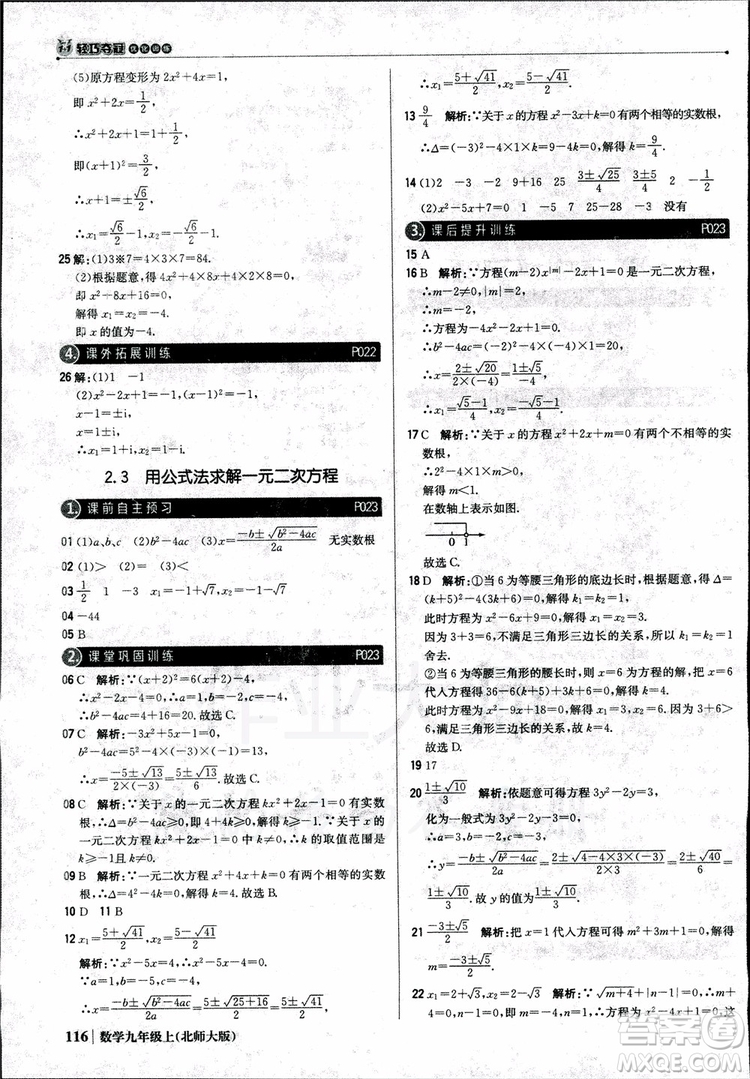 轻巧夺冠 优化训练
(5)原方程变形为 2x²+4x=1,
即 x²+2x=1/2,
即(x+1)²=1+1/2,
∴x+1=±√6/2,
∴x₁=√6/2-1,x₂=-√6/2-1.
25 解:(1)3※7=4×3×7=84.
(2)根据题意,得 4x²+8x+8×4=0,
即 x²+8x+16=0.
即 x 的值为-4.
4. 课外拓展训练 P022
26 解:(1)1 -1
(2)x²-2x=-2,
x-1=±i,
x=1±i,
∴x₁=1+i,x₂=1-i.
2.3 用公式法求解一元二次方程
1. 课前自主预习 P023
01 (1)a、b、c (2)b²-4ac (3)x=(-b±√(b²-4ac))/2a 无实数根
02 (1)> (2)= (3)<
03 1/2 1 -3 x₁=-1+√7,x₂=-1-√7
04 -44
05 B
2. 课堂巩固训练 P023
06 C 解析:∵(x+2)²=6(x+2)-4,
∴x²-2x-4=0,∴a=1,b=-2,c=-4,
∴b²-4ac=20.故选 C.
07 C 解析:-3x²+5x-1=0,
b²-4ac=5²-4×(-3)×(-1)=13,
∴x=(-5±√13)/(2×(-3))=(5±√13)/6.故选 C.
08 C 解析:∵关于 x 的一元二次方程 kx²+2x-1=0 有实数
根,∴Δ=b²-4ac≥0,即 4+4k≥0,解得 k≥-1.∵关于 x 的
一元二次方程 kx²+2x-1=0 中 k≠0,则 k 的取值范围是
k≥-1 且 k≠0.故选 C.
09 B 解析:∵一元二次方程 x²-2x+m=0 有两个不相等的实数
根,∴Δ=4-4m>0,解得 m<1.故选 B.
10 D 11 B
12 x₁=(5+√41)/2,x₂=(5-√41)/2
解析:∵x²-5x-4=0,
∴a=1,b=-5,c=-4,
∴x=(-b±√(b²-4ac))/2a=(5±√(25+16))/2=(5±√41)/2,
∴x₁=(5+√41)/2,x₂=(5-√41)/2.
13 9/4 解析:∵关于 x 的方程 x²-3x+k=0 有两个相等的实数根,
∴Δ=(-3)²-4×1×k=9-4k=0,解得 k=9/4.
14 (1)2 -3 -2 9+16 25 (3±√25)/4 (3±5)/4 2 -1/2
(2)x²-5x+7=0 1 -5 7 25-28 -3 没有
3. 课后提升训练 P023
15 A
16 B 解析:∵方程(m-2)x^|m|-2x+1=0 是一元二次方程,
∴m-2≠0,|m|=2,
∴m=-2,
∴方程为-4x²-2x+1=0,
∴x=(2±√20)/(2×(-4))=-(√5+1)/4,
∴x₁=(√5-1)/4,x₂=-(√5-1)/4.
17 C 解析:∵关于 x 的方程有两个不相等的实数根,
∴Δ=4-4m>0,
解得 m<1.
在数轴上表示如图.
0 1
故选 C.
18 D 解析:①当 6 为等腰三角形的底边长时,根据题意,得 Δ=
(k+5)²-4×6k=0,解得 k₁=k₂=
∵ 不满足三角形三边长的关系,所以
舍去;
②当 6 为等腰三角形的一腰长时,则 x=6 是方程的解,把 x=6
代入方程得
∴原方程为 x²-9x+18=0,解得 x₁=3,x₂=6,
满足三角形三边长的关系,
故选 D.
19 17
20 (1±√10)/3 解析:依题意可得方程 3y²-2y=3,
化为一般形式为 3y²-2y-3=0,
∴a=3,b=-2,c=-3,
∴y=(2±√(4-4×3×(-3)))/(2×3)=(1±√10)/3.
21 (-3±√5)/2 解析:把 x=1 代入方程可得 m²+3m+1=0,
解得 m=(-3±√5)/2.
22 x₁=2+√3,x₂=2-√3 解析:∵√(m+4)+|n-1|=0,
∴m+4=0,n-1=0,∴m=-4,n=1,∴x²-4x+1=0,这
116 数学九年级上(北师大版)
作业大
答案圈
MXQE.COM